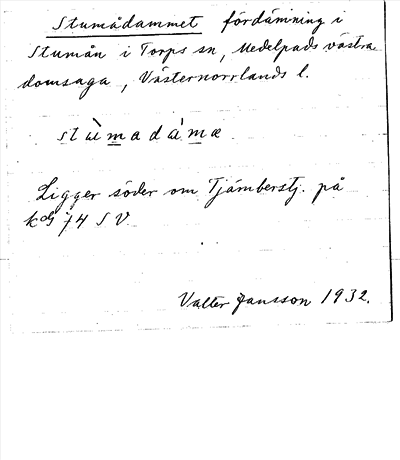 Stumådammet fördämning i
Stumån i Torps sn, Medelpads västra
domsaga, Västernorrlands l.
stùmadámæ
Ligger söder om Tjärnbergstj. på
kbl 74 SV
Valter Jansson 1932.